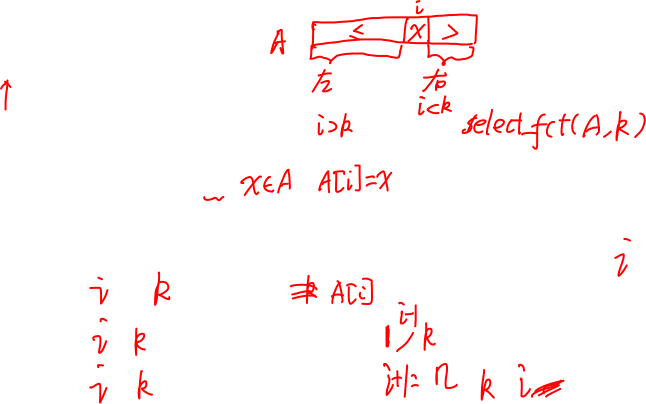 i
A < x >
左 右
i>k i<k select_fct(A,k)
x∈A A[i]=x
i
i k A[i]
i k 1,i-1 k
i k i+1=n k i